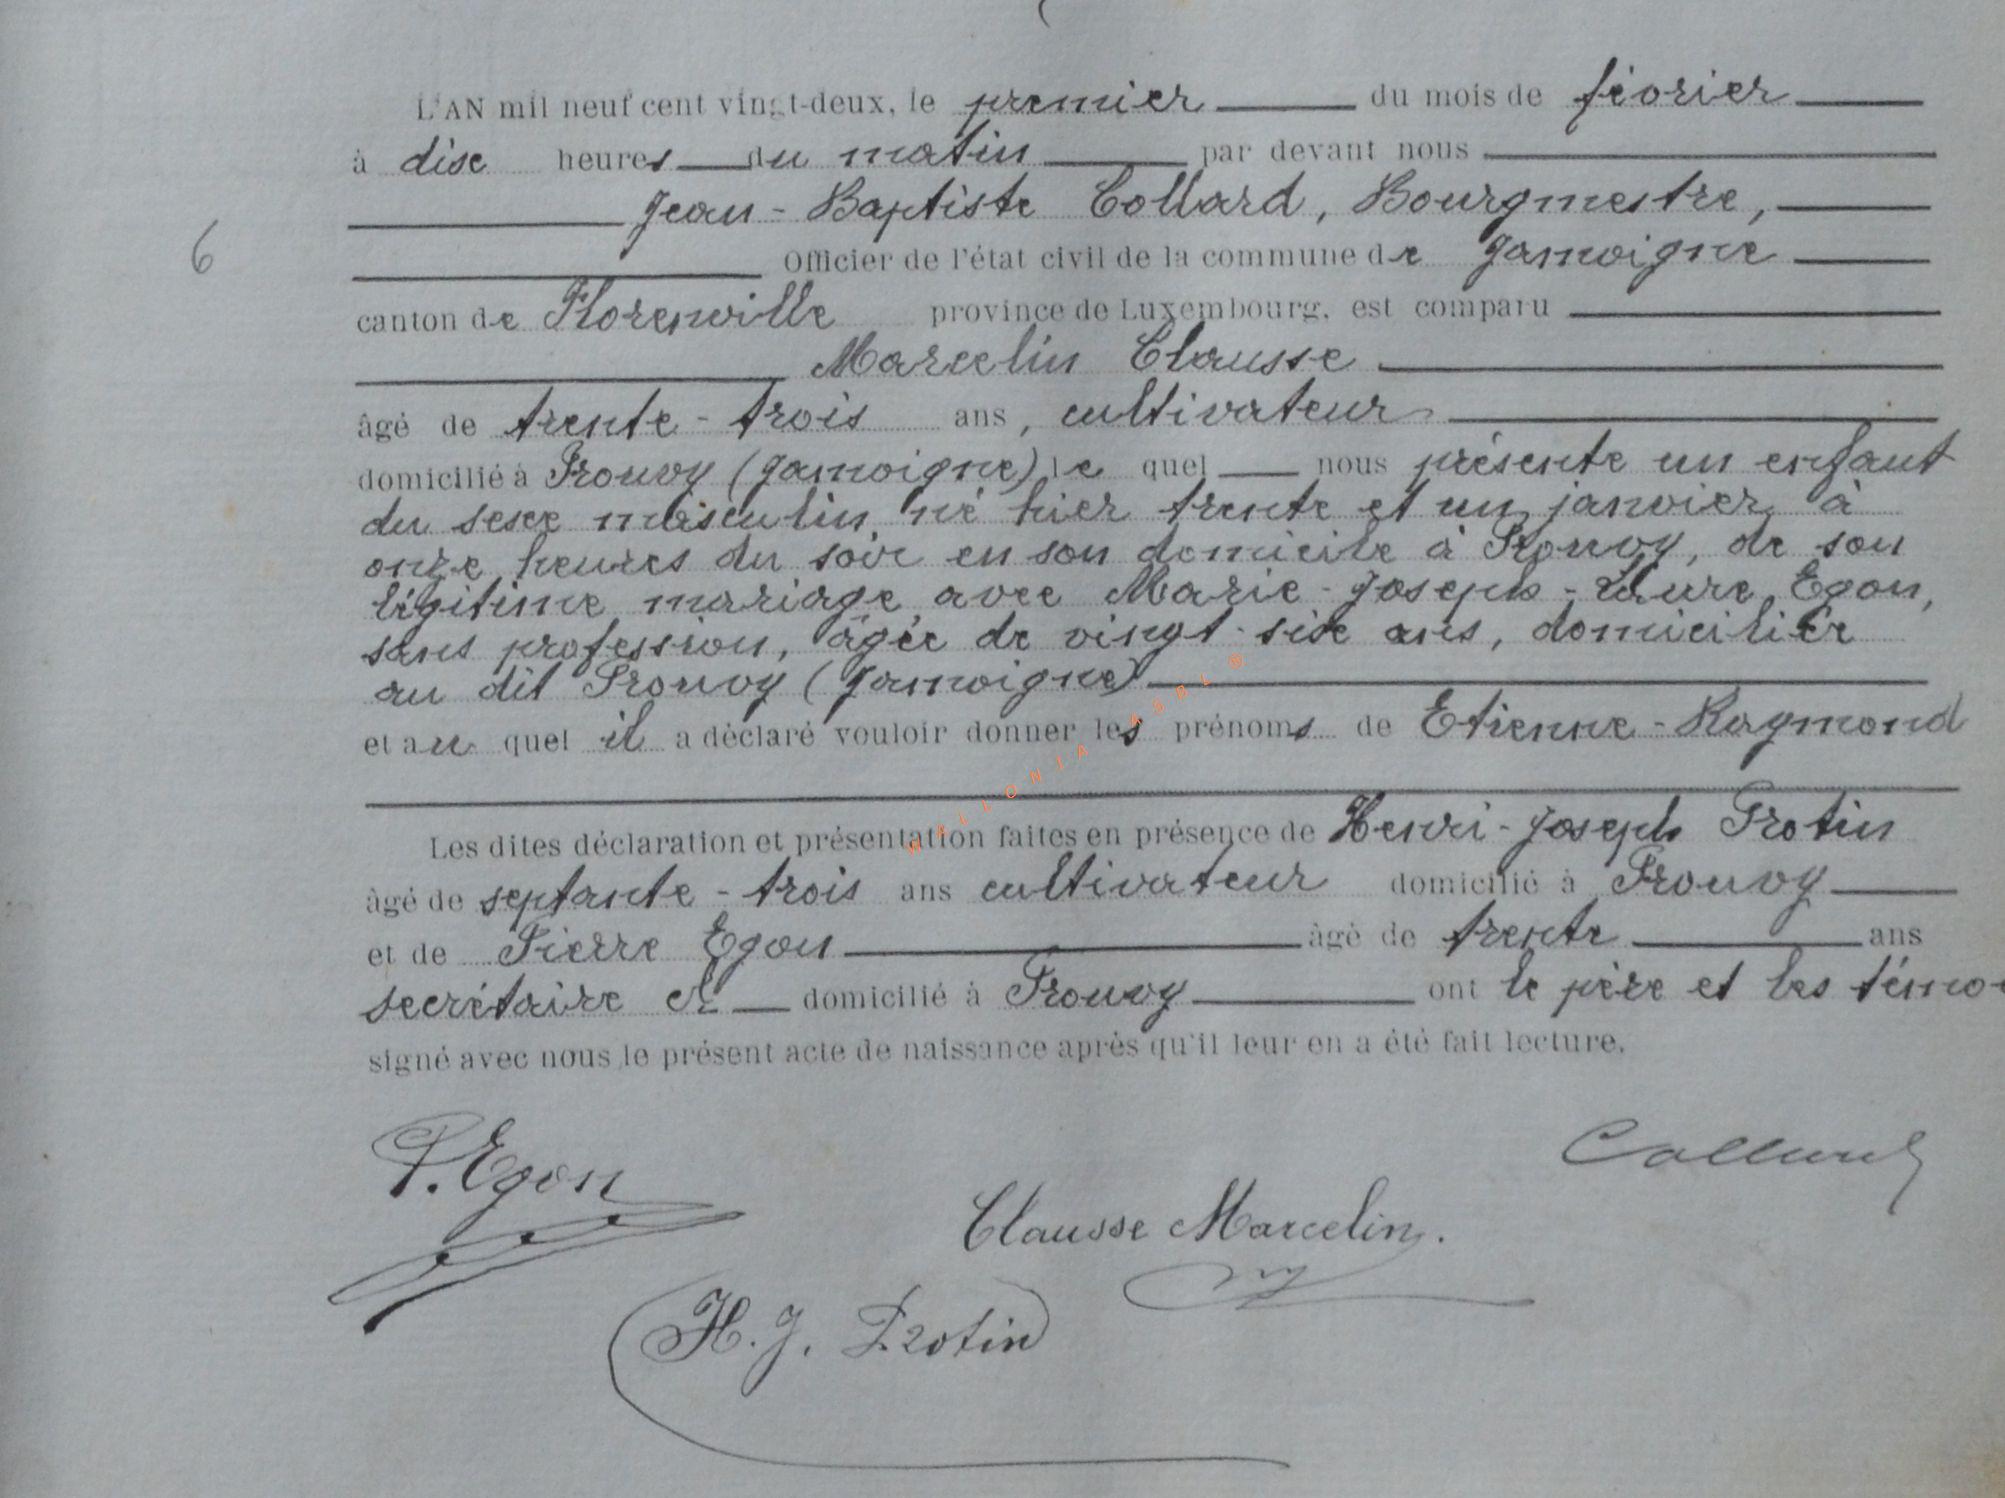 L'AN mil neuf cent vingt-deux, le premier du mois de février
à dix heures du matin par devant nous
Jean-Baptiste Collard, Bourgmestre,
6
Officier de l'état civil de la commune de Jamoigne
canton de Florenville province de Luxembourg, est comparu
Marcelin Clausse
âgé de trente-trois ans, cultivateur
domicilié à Prouvy (Jamoigne) le quel nous présente un enfant
du sexe masculin né hier trente et un janvier à
onze heures du soir en son domicile à Prouvy, de son
légitime mariage avec Marie-Joseph-Laure Egon,
sans profession, âgée de vingt-six ans, domiciliée
au dit Prouvy (Jamoigne)
et au quel il a déclaré vouloir donner les prénoms de Etienne-Raymond
Les dites déclaration et présentation faites en présence de Henri-Joseph Protin
âgé de septante-trois ans cultivateur domicilié à Prouvy
et de Pierre Egon âgé de trente ans
secrétaire cl domicilié à Prouvy ont le père et les témo
signé avec nous le présent acte de naissance après qu'il leur en a été fait lecture.
P. Egon
Collard
Clausse Marcelin.
H. J. Protin
WALLONIA ASBL ®